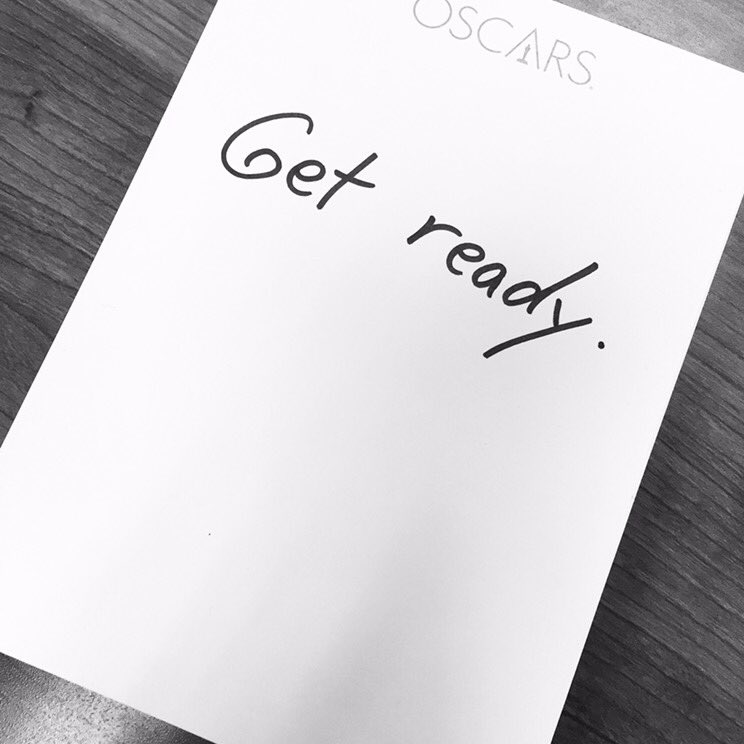 OSCARS
Get ready.